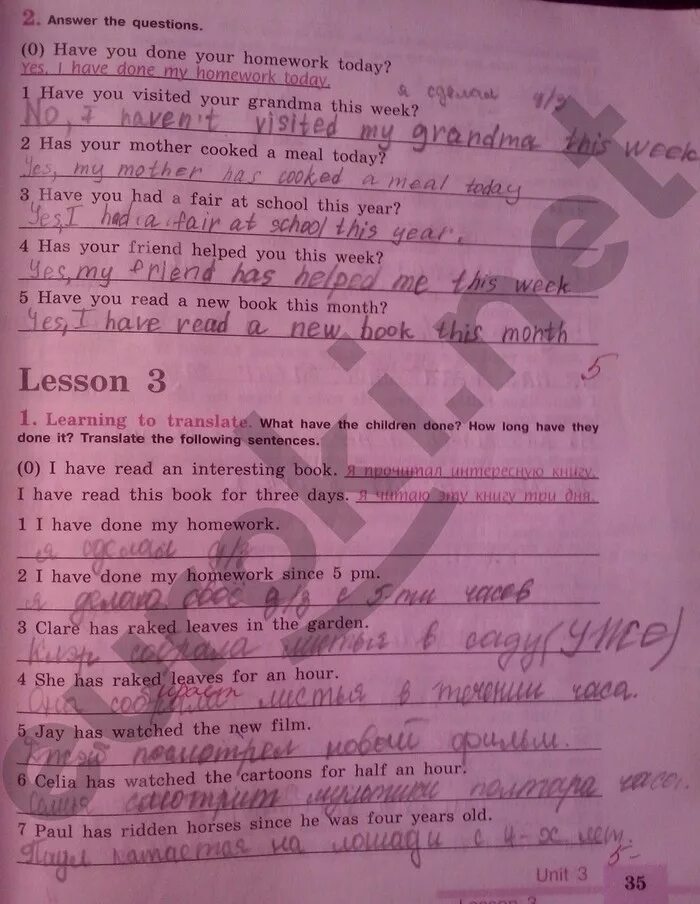 2. Answer the questions.
(0) Have you done your homework today?
Yes, I have done my homework today.
я сделал д/з
1 Have you visited your grandma this week?
No, I haven't visited my grandma this week
2 Has your mother cooked a meal today?
Yes, my mother has cooked a meal today
3 Have you had a fair at school this year?
Yes, I had a fair at school this year.
4 Has your friend helped you this week?
Yes, my friend has helped me this week
5 Have you read a new book this month?
Yes, I have read a new book this month
5
Lesson 3
1. Learning to translate. What have the children done? How long have they
done it? Translate the following sentences.
(0) I have read an interesting book. Я прочитал интересную книгу.
I have read this book for three days. Я читаю эту книгу три дня.
1 I have done my homework.
я сделал д/з
2 I have done my homework since 5 pm.
я делаю своё д/з с 5-ти часов
3 Clare has raked leaves in the garden.
Клэр собрала листья в саду (уже)
4 She has raked leaves for an hour.
Она листья в течении часа.
5 Jay has watched the new film.
посмотрел новый фильм.
6 Celia has watched the cartoons for half an hour.
смотрит мультики полтара часа.
7 Paul has ridden horses since he was four years old.
Паул катается на лошади с 4-х лет.
5-
Unit 3
35
Lesson 3
euroki.net